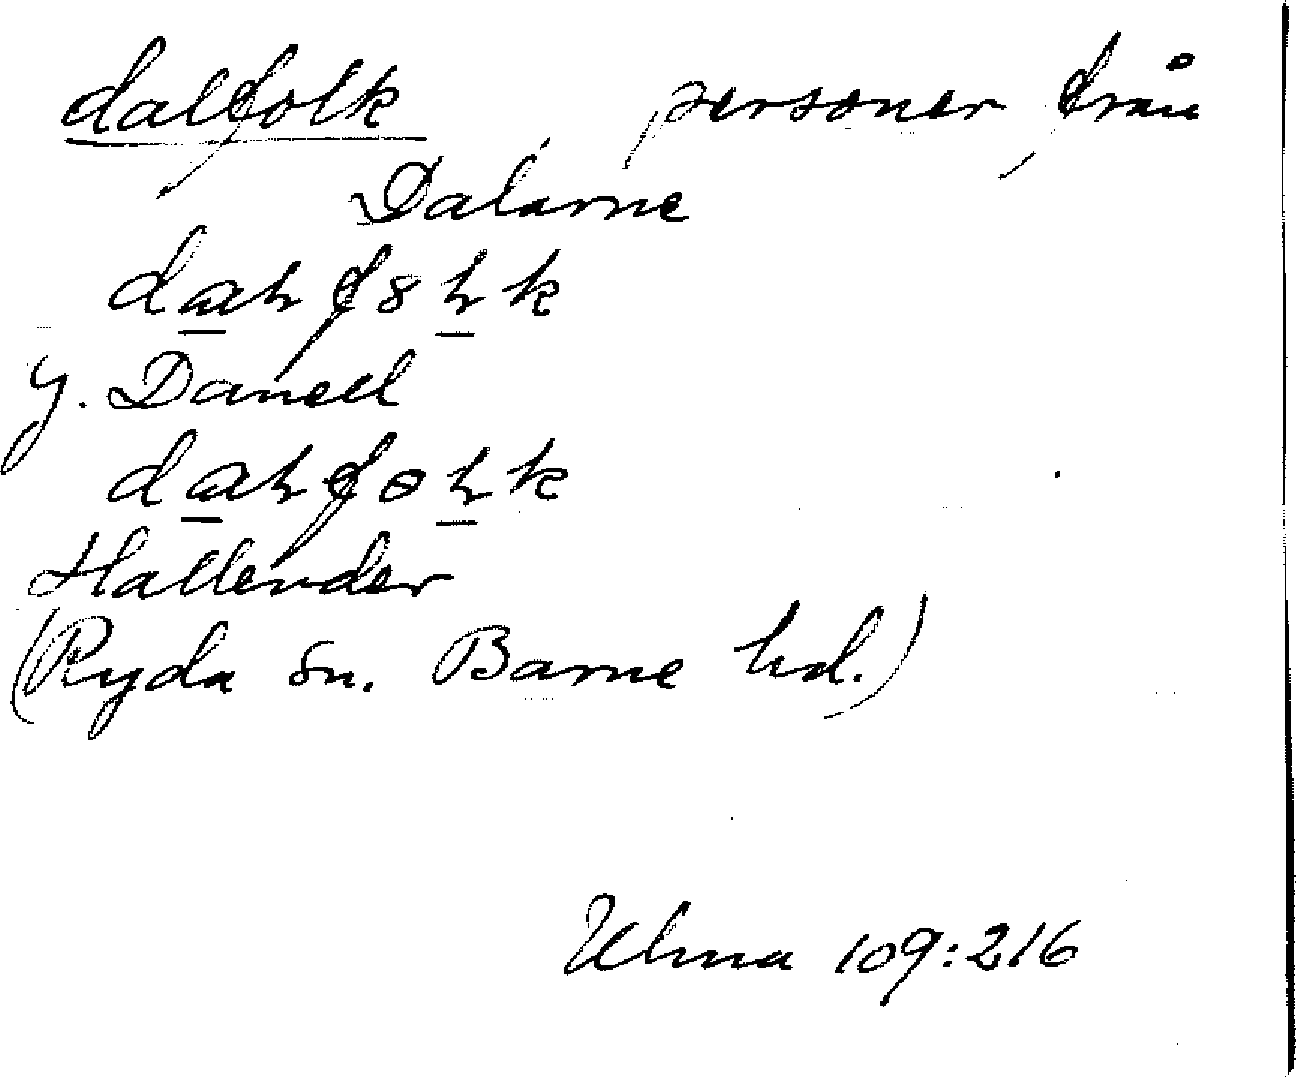 dalfolk personer från
Dalarne
G. Daniell
Hallender
(Ryda sn. Barne hd.)
Ulma 109:216